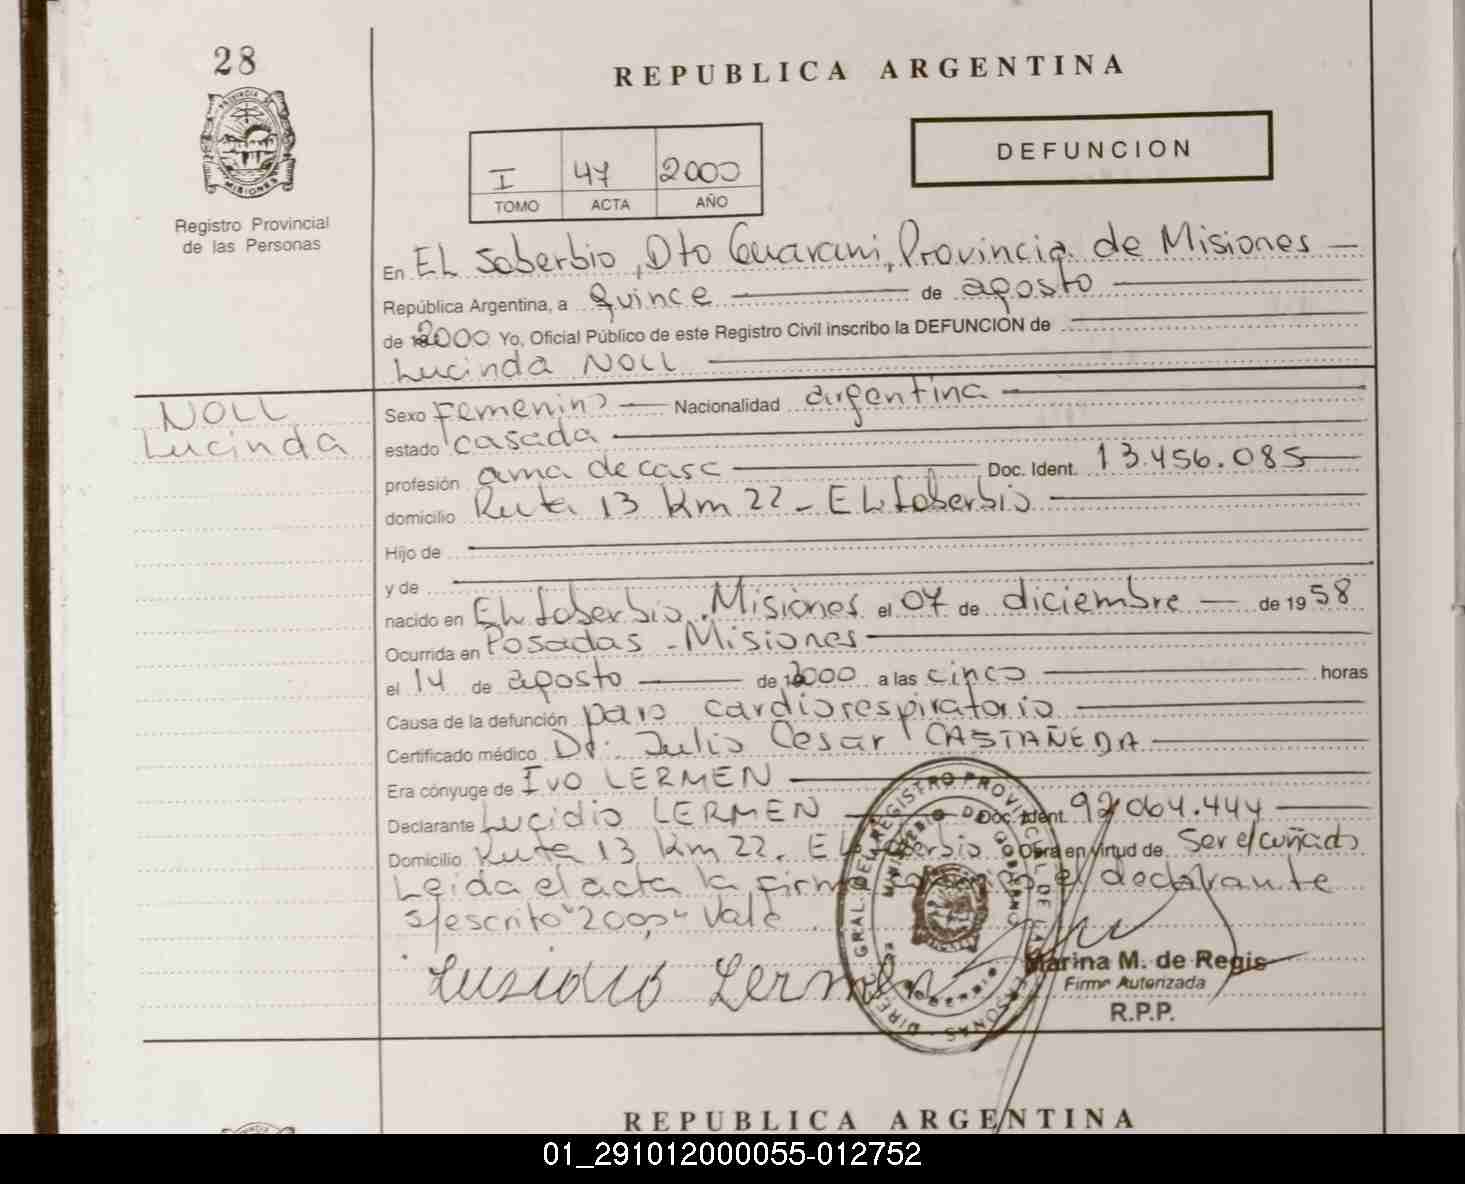 28
REPUBLICA ARGENTINA
PROVINCIA DE MISIONES
Registro Provincial
de las Personas
I 47 2000
TOMO ACTA AÑO
DEFUNCION
En EL Soberbio, Dto Guarani, Provincia de Misiones
República Argentina, a quince de agosto
de 2000 Yo, Oficial Público de este Registro Civil inscribo la DEFUNCION de
Lucinda NOLL
NOLL
Lucinda
Sexo Femenino Nacionalidad argentina
estado casada
profesión ama de casa Doc. Ident. 13.456.085
domicilio Ruta 13 Km 22 - EL Soberbio
Hijo de
y de
nacido en EL Soberbio, Misiones el 07 de diciembre de 1958
Ocurrida en Posadas - Misiones
el 14 de agosto de 2000 a las cinco horas
Causa de la defunción paro cardiorespiratorio
Certificado médico Dr. Julio Cesar CASTAÑEDA
Era cónyuge de Ivo LERMEN
Declarante Lucidio LERMEN Doc. Ident. 92.064.444
Domicilio Ruta 13 Km 22. EL Soberbio Obra en virtud de Ser el cuñado
Leida el acta la firma el declarante
s/escrito "2000" Vale
Lusidio Lermen
Marina M. de Regis
Firma Autorizada
R.P.P.
REPUBLICA ARGENTINA
01_291012000055-012752